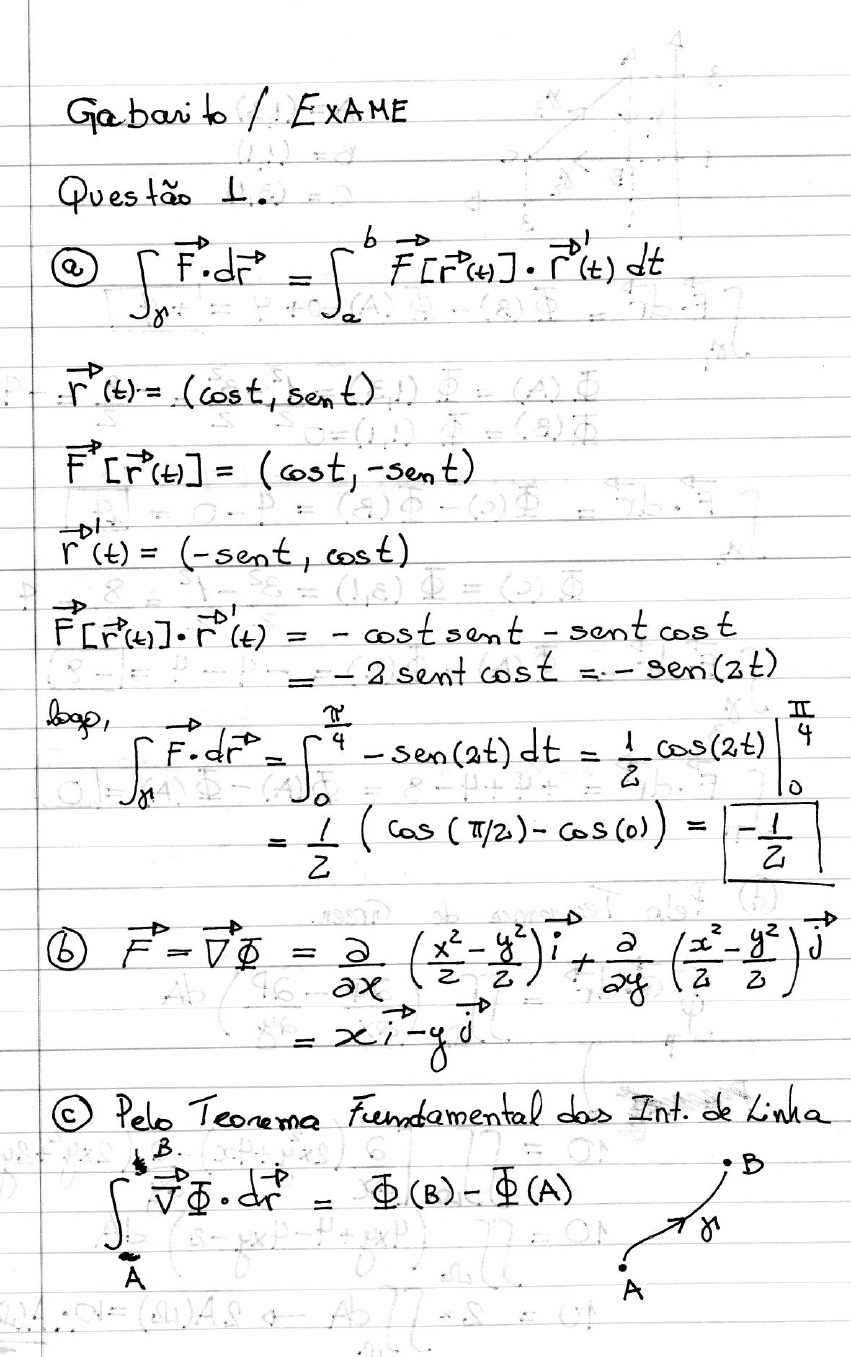 Gabarito / EXAME
Questão 1.
ⓐ ∫_γ F⃗·dr⃗ = ∫_a^b F⃗[r⃗(t)]·r⃗'(t) dt
r⃗(t) = (cost, sent)
F⃗[r⃗(t)] = (cost, -sent)
r⃗'(t) = (-sent, cost)
F⃗[r⃗(t)]·r⃗'(t) = - cost sent - sent cost
= - 2 sent cost = - sen(2t)
logo,
∫_γ F⃗·dr⃗ = ∫_0^{π/4} - sen(2t) dt = 1/2 cos(2t) |_0^{π/4}
= 1/2 (cos(π/2) - cos(0)) = -1/2
ⓑ F⃗ = ∇⃗Φ = ∂/∂x (x²/2 - y²/2) i⃗ + ∂/∂y (x²/2 - y²/2) j⃗
= x i⃗ - y j⃗
ⓒ Pelo Teorema Fundamental das Int. de Linha
∫_A^B ∇⃗Φ·dr⃗ = Φ(B) - Φ(A)
B
γ
A